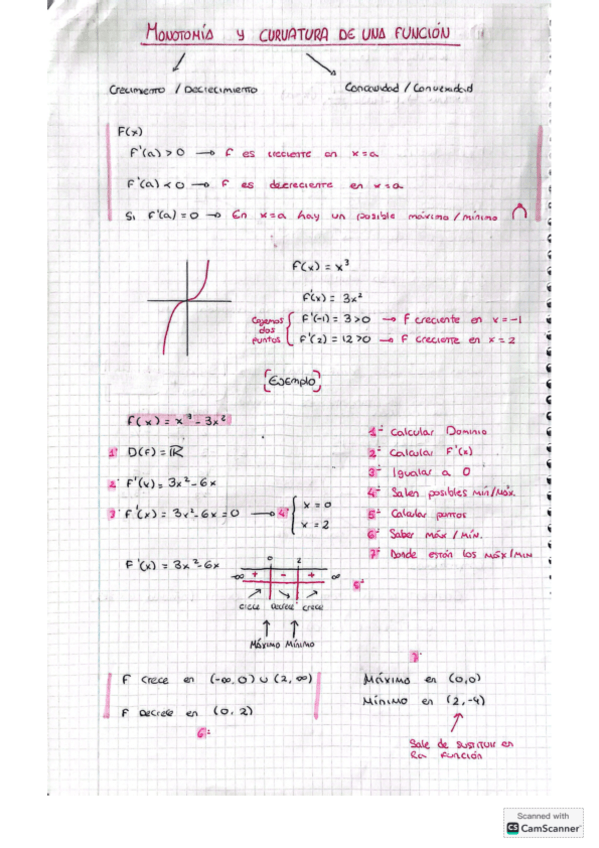 MONOTOMÍA Y CURVATURA DE UNA FUNCIÓN
Crecimiento / Decrecimiento
Concavidad / Convexidad
F(x)
F'(a) > 0 → F es creciente en x=a
F'(a) < 0 → F es decreciente en x=a
Si F'(a) = 0 → En x=a hay un posible máximo/mínimo
F(x) = x³
F'(x) = 3x²
Cogemos dos puntos
F'(-1) = 3 > 0 → F creciente en x=-1
F'(2) = 12 > 0 → F creciente en x=2
[Ejemplo]
F(x) = x³ - 3x²
1º D(F) = ℝ
2º F'(x) = 3x² - 6x
3º F'(x) = 3x² - 6x = 0 → 4º { x = 0
x = 2
1º Calcular Dominio
2º Calcular F'(x)
3º Igualar a 0
4º Salen posibles mín/máx.
5º Calcular puntos
6º Saber máx/mín.
7º Donde están los máx/mín
F'(x) = 3x² - 6x
0 2
-∞ + - + ∞
5º
crece decrece crece
Máximo Mínimo
F crece en (-∞, 0) ∪ (2, ∞)
F decrece en (0, 2)
6º
7º
Máximo en (0,0)
Mínimo en (2,-4)
Sale de sustituir en
la función
Scanned with
CS CamScanner